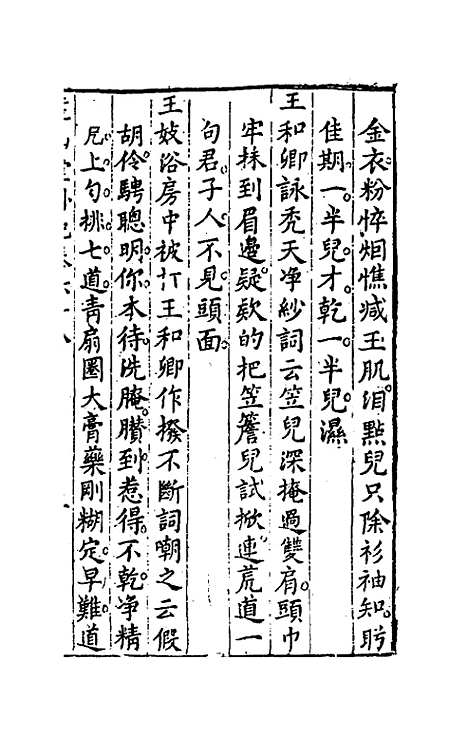 金衣粉悴烟憔减玉肌泪點兒只除衫袖知盻
佳期一半兒才乾一半兒濕
王和卿詠禿天净紗詞云笠兒深掩過雙肩頭巾
牢抹到眉邊疑欵的把笠簷兒試掀連荒道一
句君子人不見頭面
王妓浴房中被打王和卿作撥不斷詞嘲之云假
胡伶騁聰明你本待洗腌臢到惹得不乾净精
尻上勺排七道青扇圈大膏藥剛糊定早難道